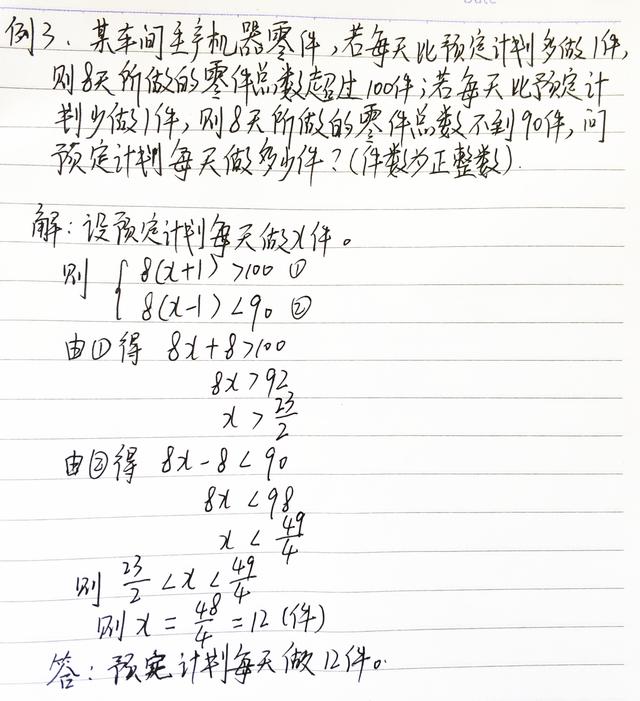 例3、某车间生产机器零件,若每天比预定计划多做1件,
则8天所做的零件总数超过100件;若每天比预定计
划少做1件,则8天所做的零件总数不到90件,问
预定计划每天做多少件?(件数为正整数).
解:设预定计划每天做x件。
则 { 8(x+1)>100 ①
8(x-1)<90 ②
由①得 8x+8>100
8x>92
x>23/2
由②得 8x-8<90
8x<98
x<49/4
则 23/2<x<49/4
则x=48/4=12(件)
答:预定计划每天做12件。